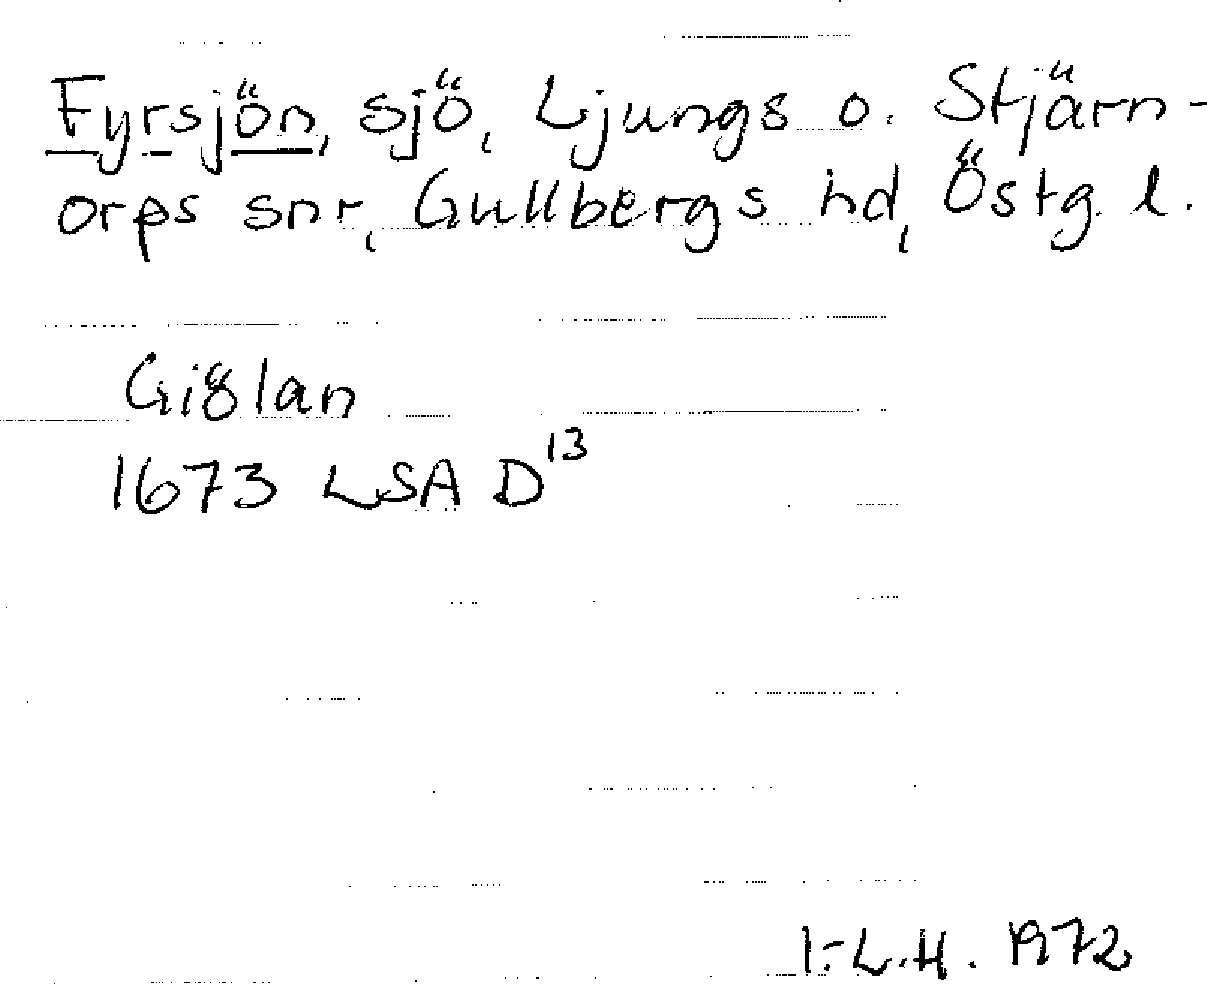 Fyrsjön, sjö, Ljungs o. Stjärn-
orps snr, Gullbergs hd, Östg. l.
Giölan
1673 LSA D13
I-L.H. 1972